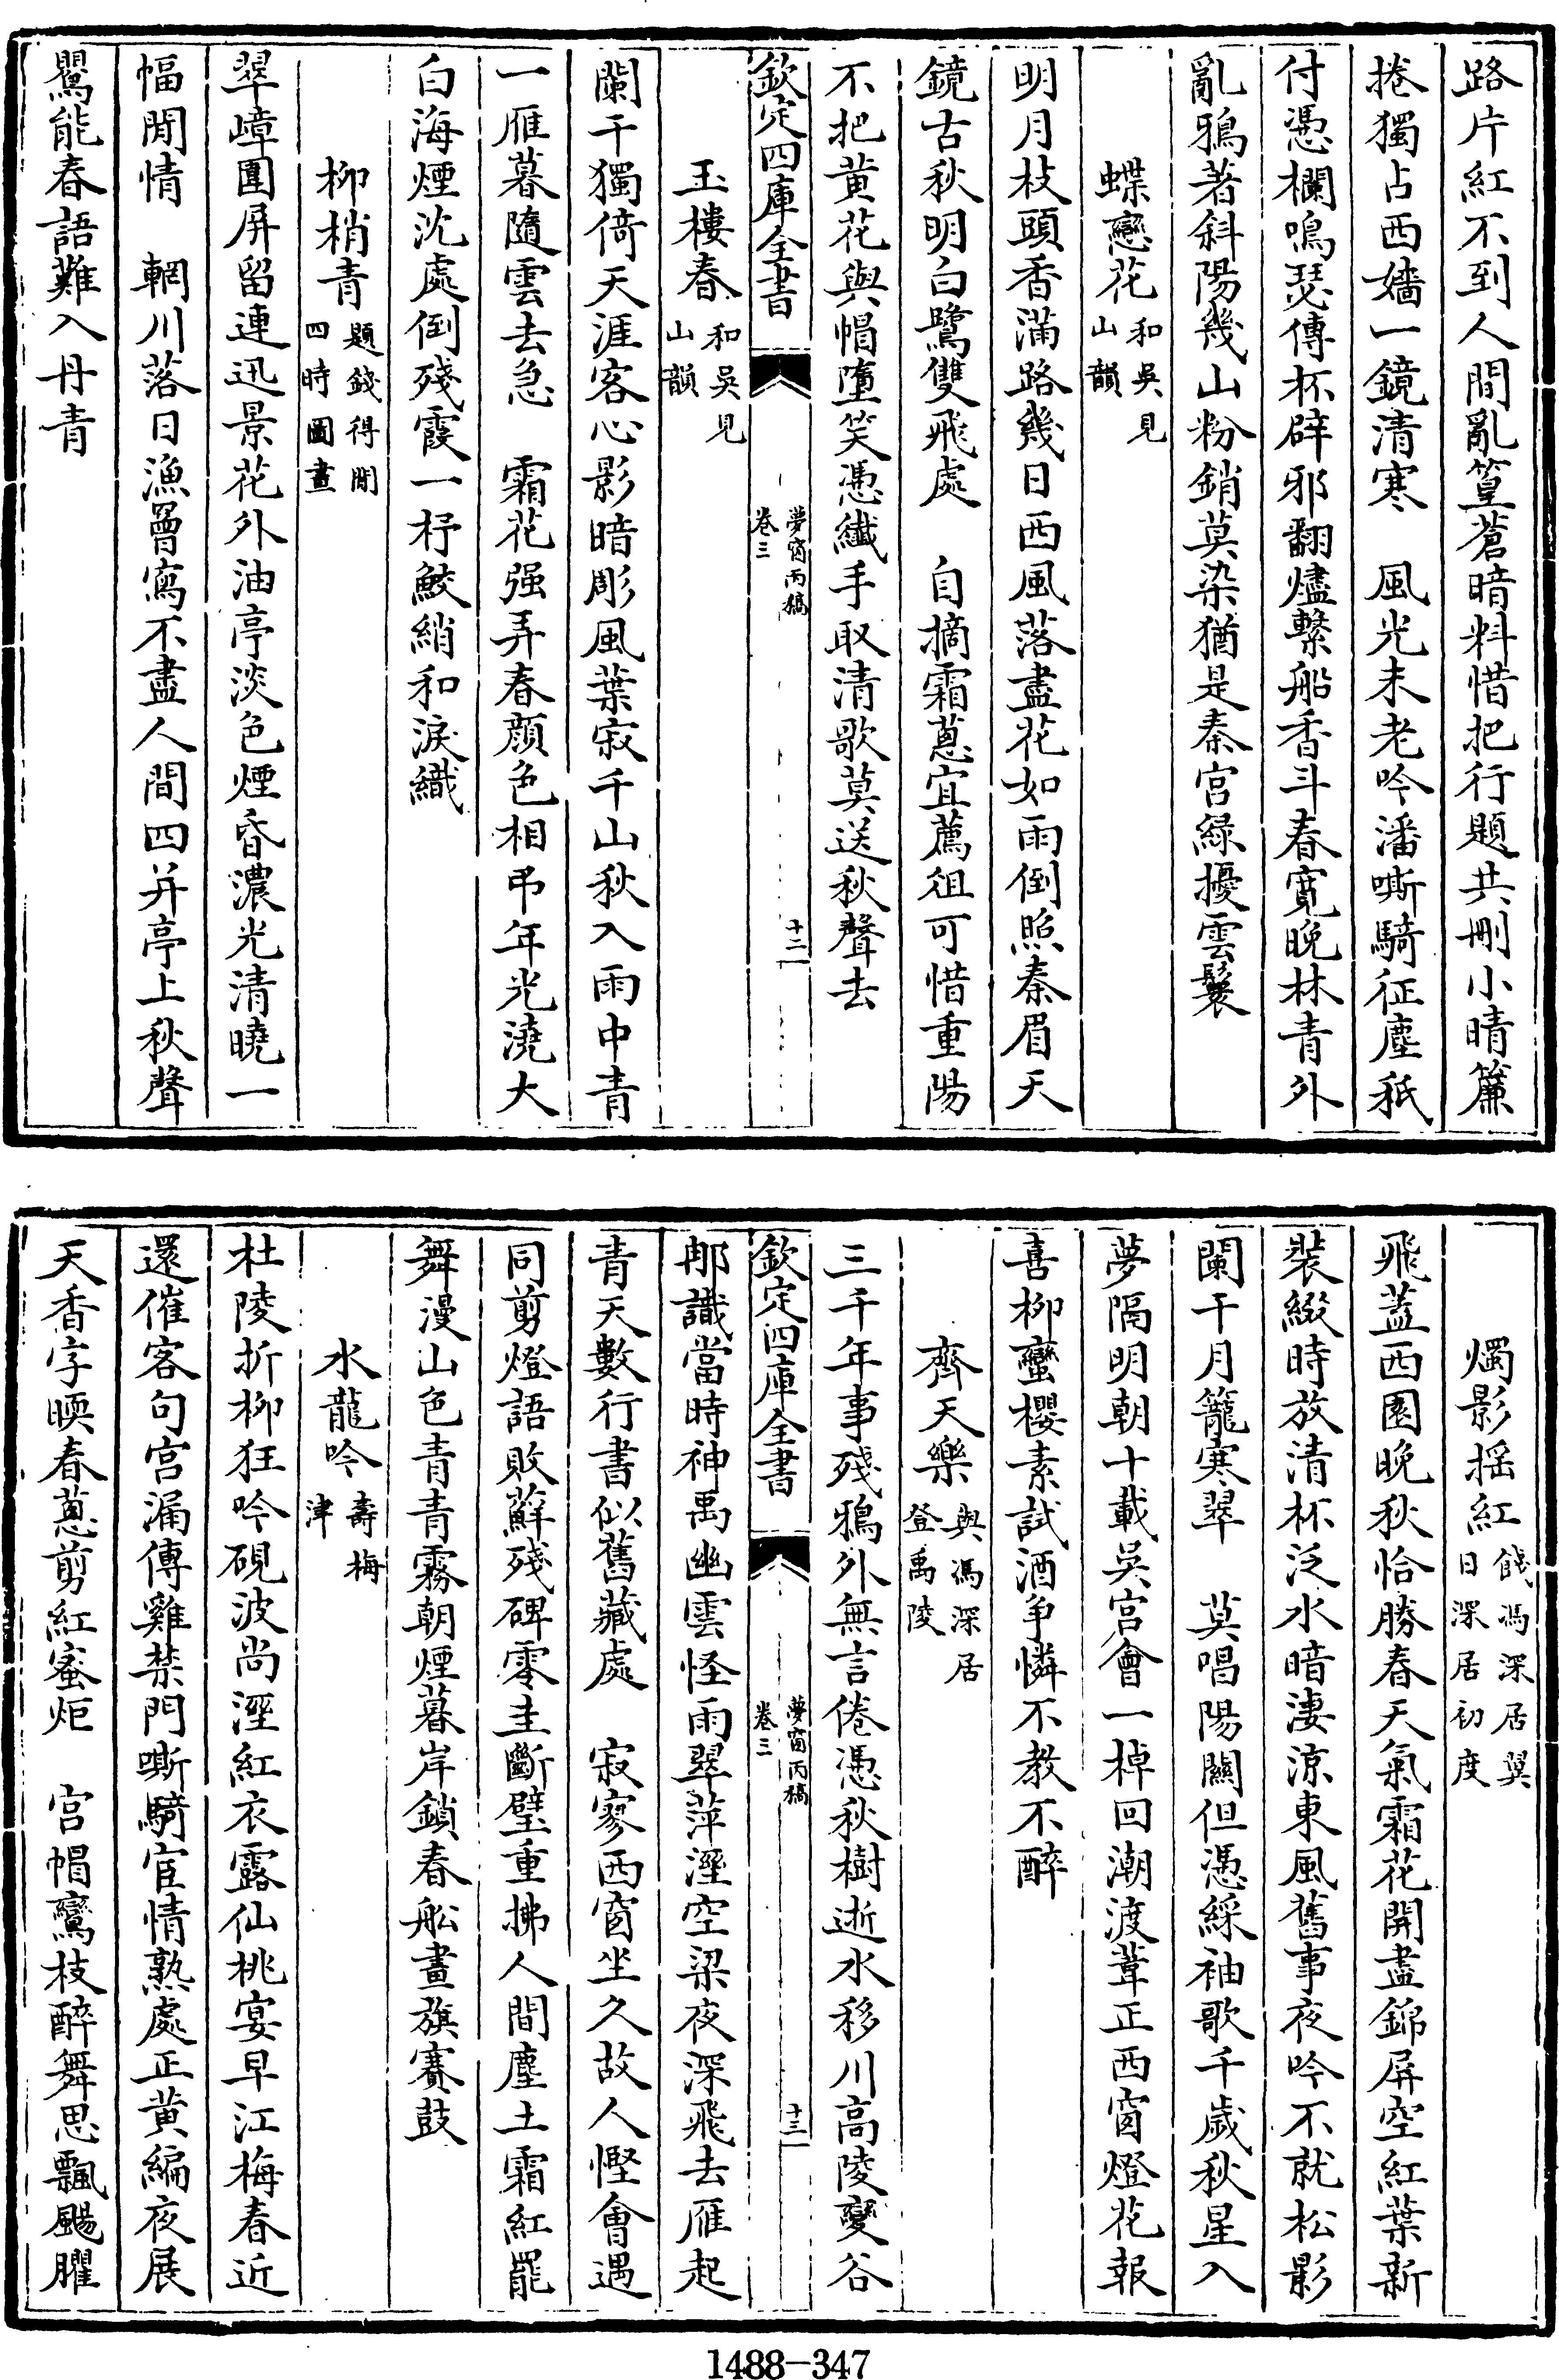 路片紅不到人間亂篁蒼暗料惜把行題共刪小晴簾
捲獨占西牆一鏡清寒　風光未老吟潘嘶騎征塵秖
付憑欄鳴瑟傳杯辟邪翻燼繫船香斗春寛晚林青外
亂鴉著斜陽幾山粉銷莫染猶是秦宮綠擾雲鬟
蝶戀花和吳見山韻
明月枝頭香滿路幾日西風落盡花如雨倒照秦眉天
鏡古秋明白鷺雙飛處　自摘霜蔥宜薦俎可惜重陽
不把黄花與帽墮笑憑纖手取清歌莫送秋聲去
欽定四庫全書　夢窗丙稿卷三　十二
玉樓春和吳見山韻
闌干獨倚天涯客心影暗彫風葉寂千山秋入雨中青
一雁暮隨雲去急　霜花强弄春顔色相弔年光澆大
白海煙沈處倒殘霞一杼鮫綃和淚織
柳梢青題錢得閒四時圖畫
翠嶂圍屏留連迅景花外油亭淡色煙昏濃光清曉一
幅閒情　輞川落日漁罾寫不盡人間四并亭上秋聲
鸎能春語難入丹青
燭影揺紅餞馮深居翼日深居初度
飛蓋西園晚秋恰勝春天氣霜花開盡錦屏空紅葉新
裝綴時放清杯泛水暗淒涼東風舊事夜吟不就松影
闌干月籠寒翠　莫唱陽關但憑綵袖歌千歲秋星入
夢隔明朝十載吳宮會一棹回潮渡葦正西窗燈花報
喜柳蠻櫻素試酒爭憐不教不醉
齊天樂與馮深居登禹陵
三千年事殘鴉外無言倦憑秋樹逝水移川高陵變谷
欽定四庫全書　夢窗丙稿卷三　十三
那識當時神禹幽雲怪雨翠萍溼空梁夜深飛去雁起
青天數行書似舊藏處　寂寥西窗坐久故人慳會遇
同剪燈語敗蘚殘碑零圭斷璧重拂人間塵土霜紅罷
舞漫山色青青霧朝煙暮岸鎖春船畫旗賽鼓
水龍吟壽梅津
杜陵折柳狂吟硯波尚溼紅衣露仙桃宴早江梅春近
還催客句宮漏傳雞禁門嘶騎宦情熟處正黄編夜展
天香字暎春蔥剪紅蜜炬　宮帽鸞枝醉舞思飄颺臞
1488—347